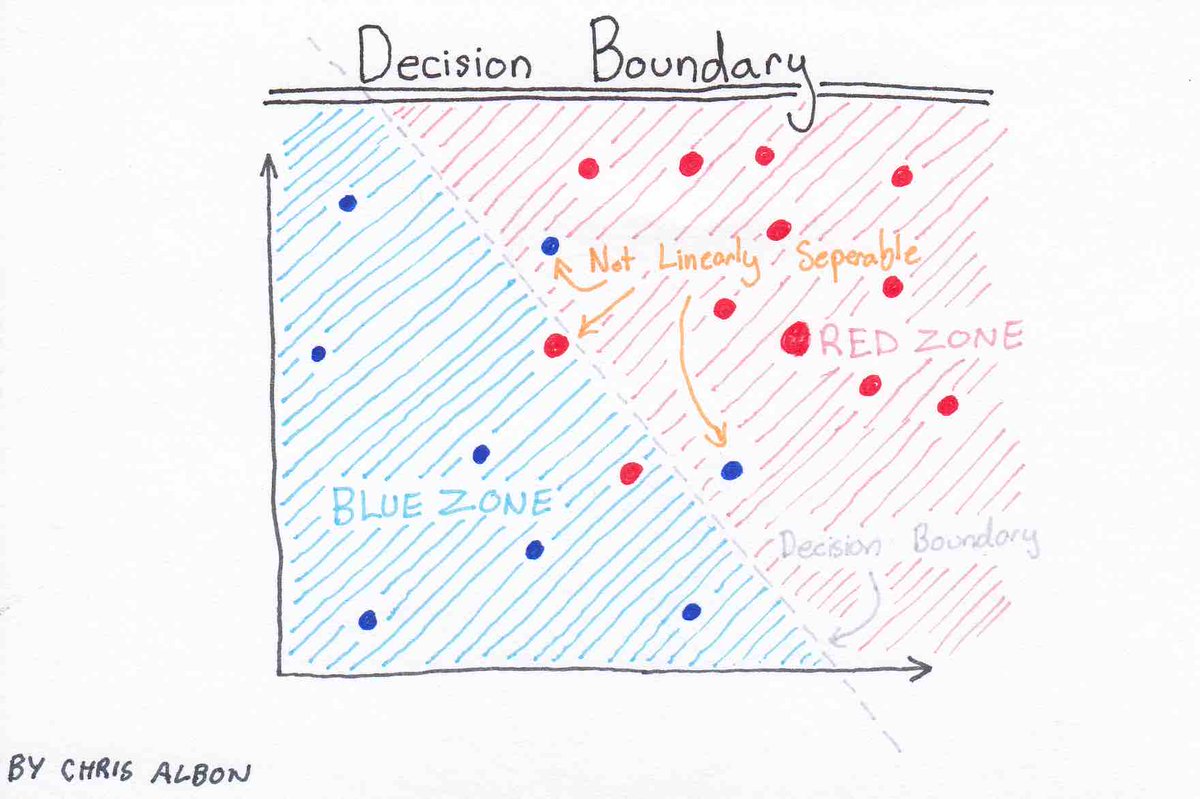 Decision Boundary
Not Linearly Seperable
RED ZONE
BLUE ZONE
Decision Boundary
BY CHRIS ALBON